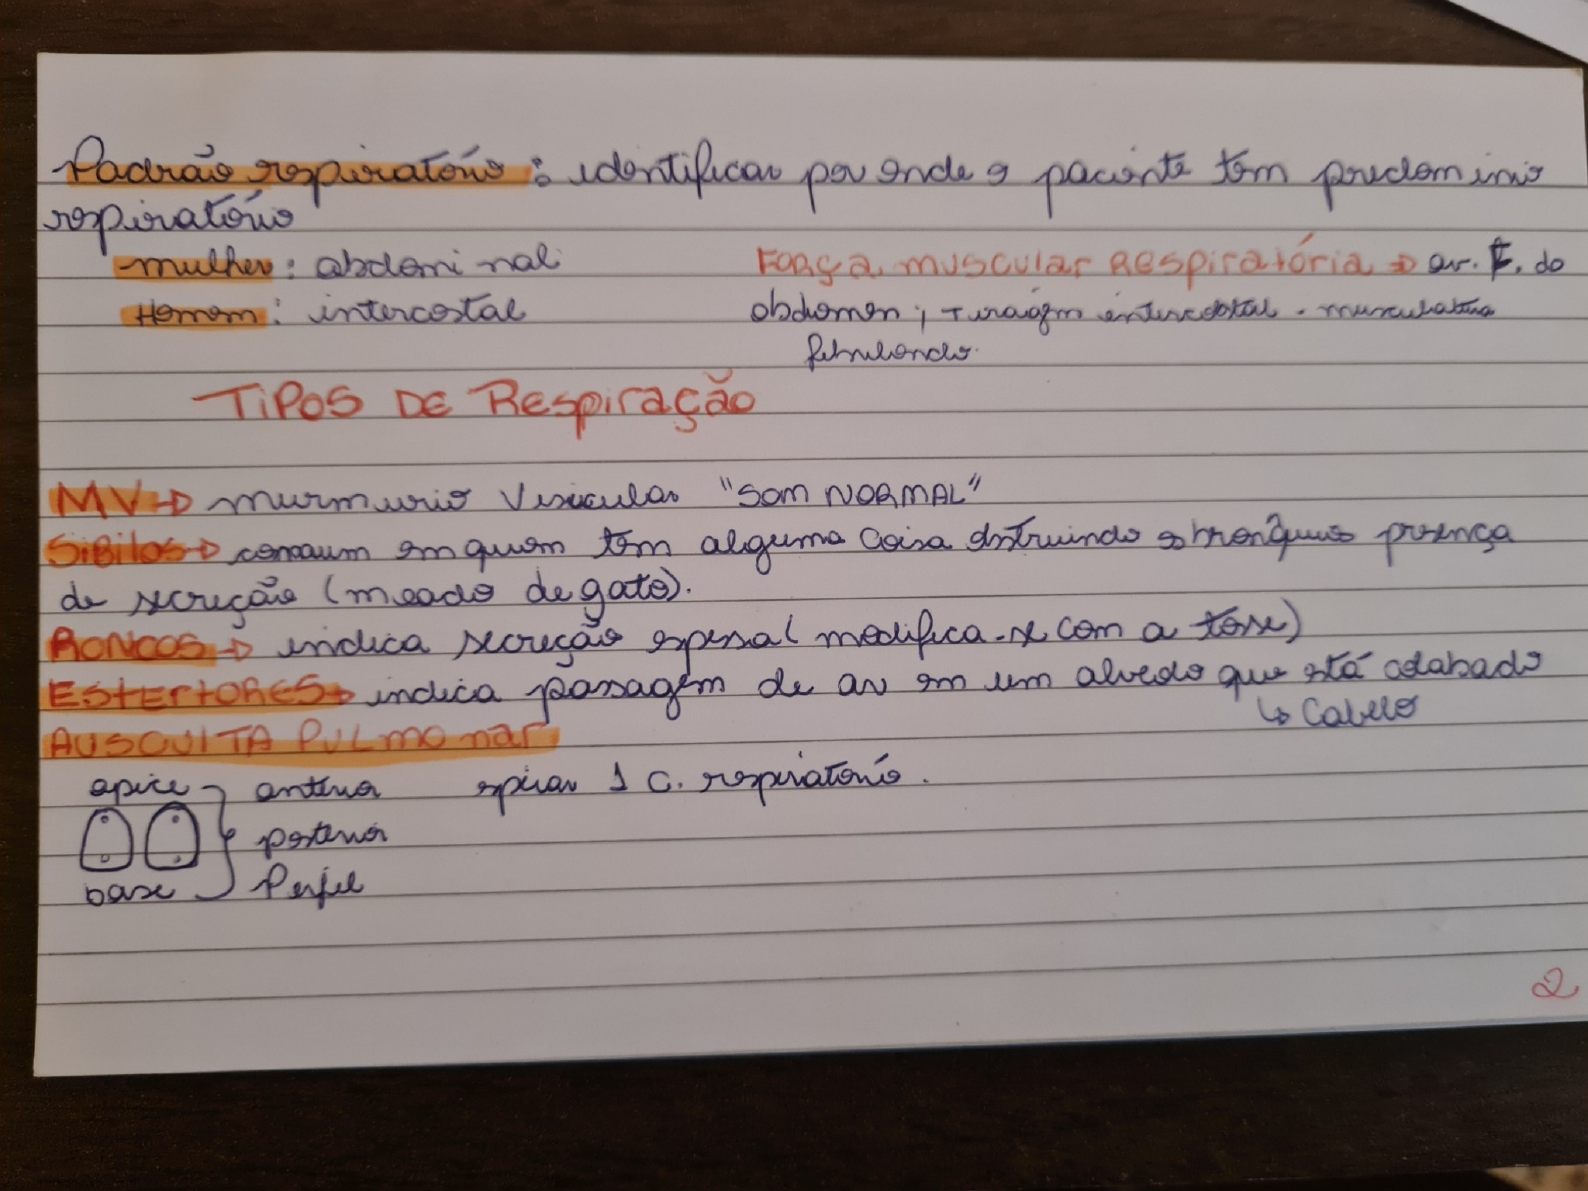 Padrão respiratório: identificar por onde o paciente tem predominio
respiratório
mulher: abdominal
Homem: intercostal
Força muscular Respiratória → av. F. do
abdomen; Tiragem intercostal . musculatura
fibrilando.
TIPOS DE Respiração
MV → murmurio Vesicular "SOM NORMAL"
SiBilos → comum em quem tem alguma coisa obstruindo o bronquio presença
de secreção (meado de gato).
RONCOS → indica secreção espessa (modifica-se com a tosse)
ESTERTORES → indica passagem de ar em um alveolo que está colabado
↳ Cabelo
AUSCULTA PULMONAR
apice
anterior
espirar 1 c. respiratório.
posterior
base
Perfil
2